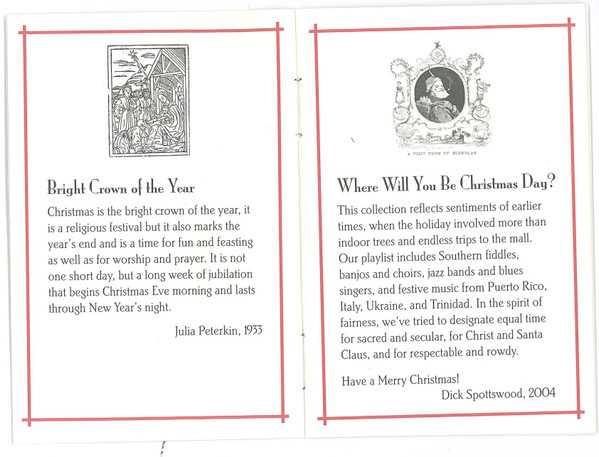 Bright Crown of the Year
Christmas is the bright crown of the year, it
is a religious festival but it also marks the
year's end and is a time for fun and feasting
as well as for worship and prayer. It is not
one short day, but a long week of jubilation
that begins Christmas Eve morning and lasts
through New Year's night.
Julia Peterkin, 1933
A VISIT FROM ST NICHOLAS.
Where Will You Be Christmas Day?
This collection reflects sentiments of earlier
times, when the holiday involved more than
indoor trees and endless trips to the mall.
Our playlist includes Southern fiddles,
banjos and choirs, jazz bands and blues
singers, and festive music from Puerto Rico,
Italy, Ukraine, and Trinidad. In the spirit of
fairness, we've tried to designate equal time
for sacred and secular, for Christ and Santa
Claus, and for respectable and rowdy.
Have a Merry Christmas!
Dick Spottswood, 2004